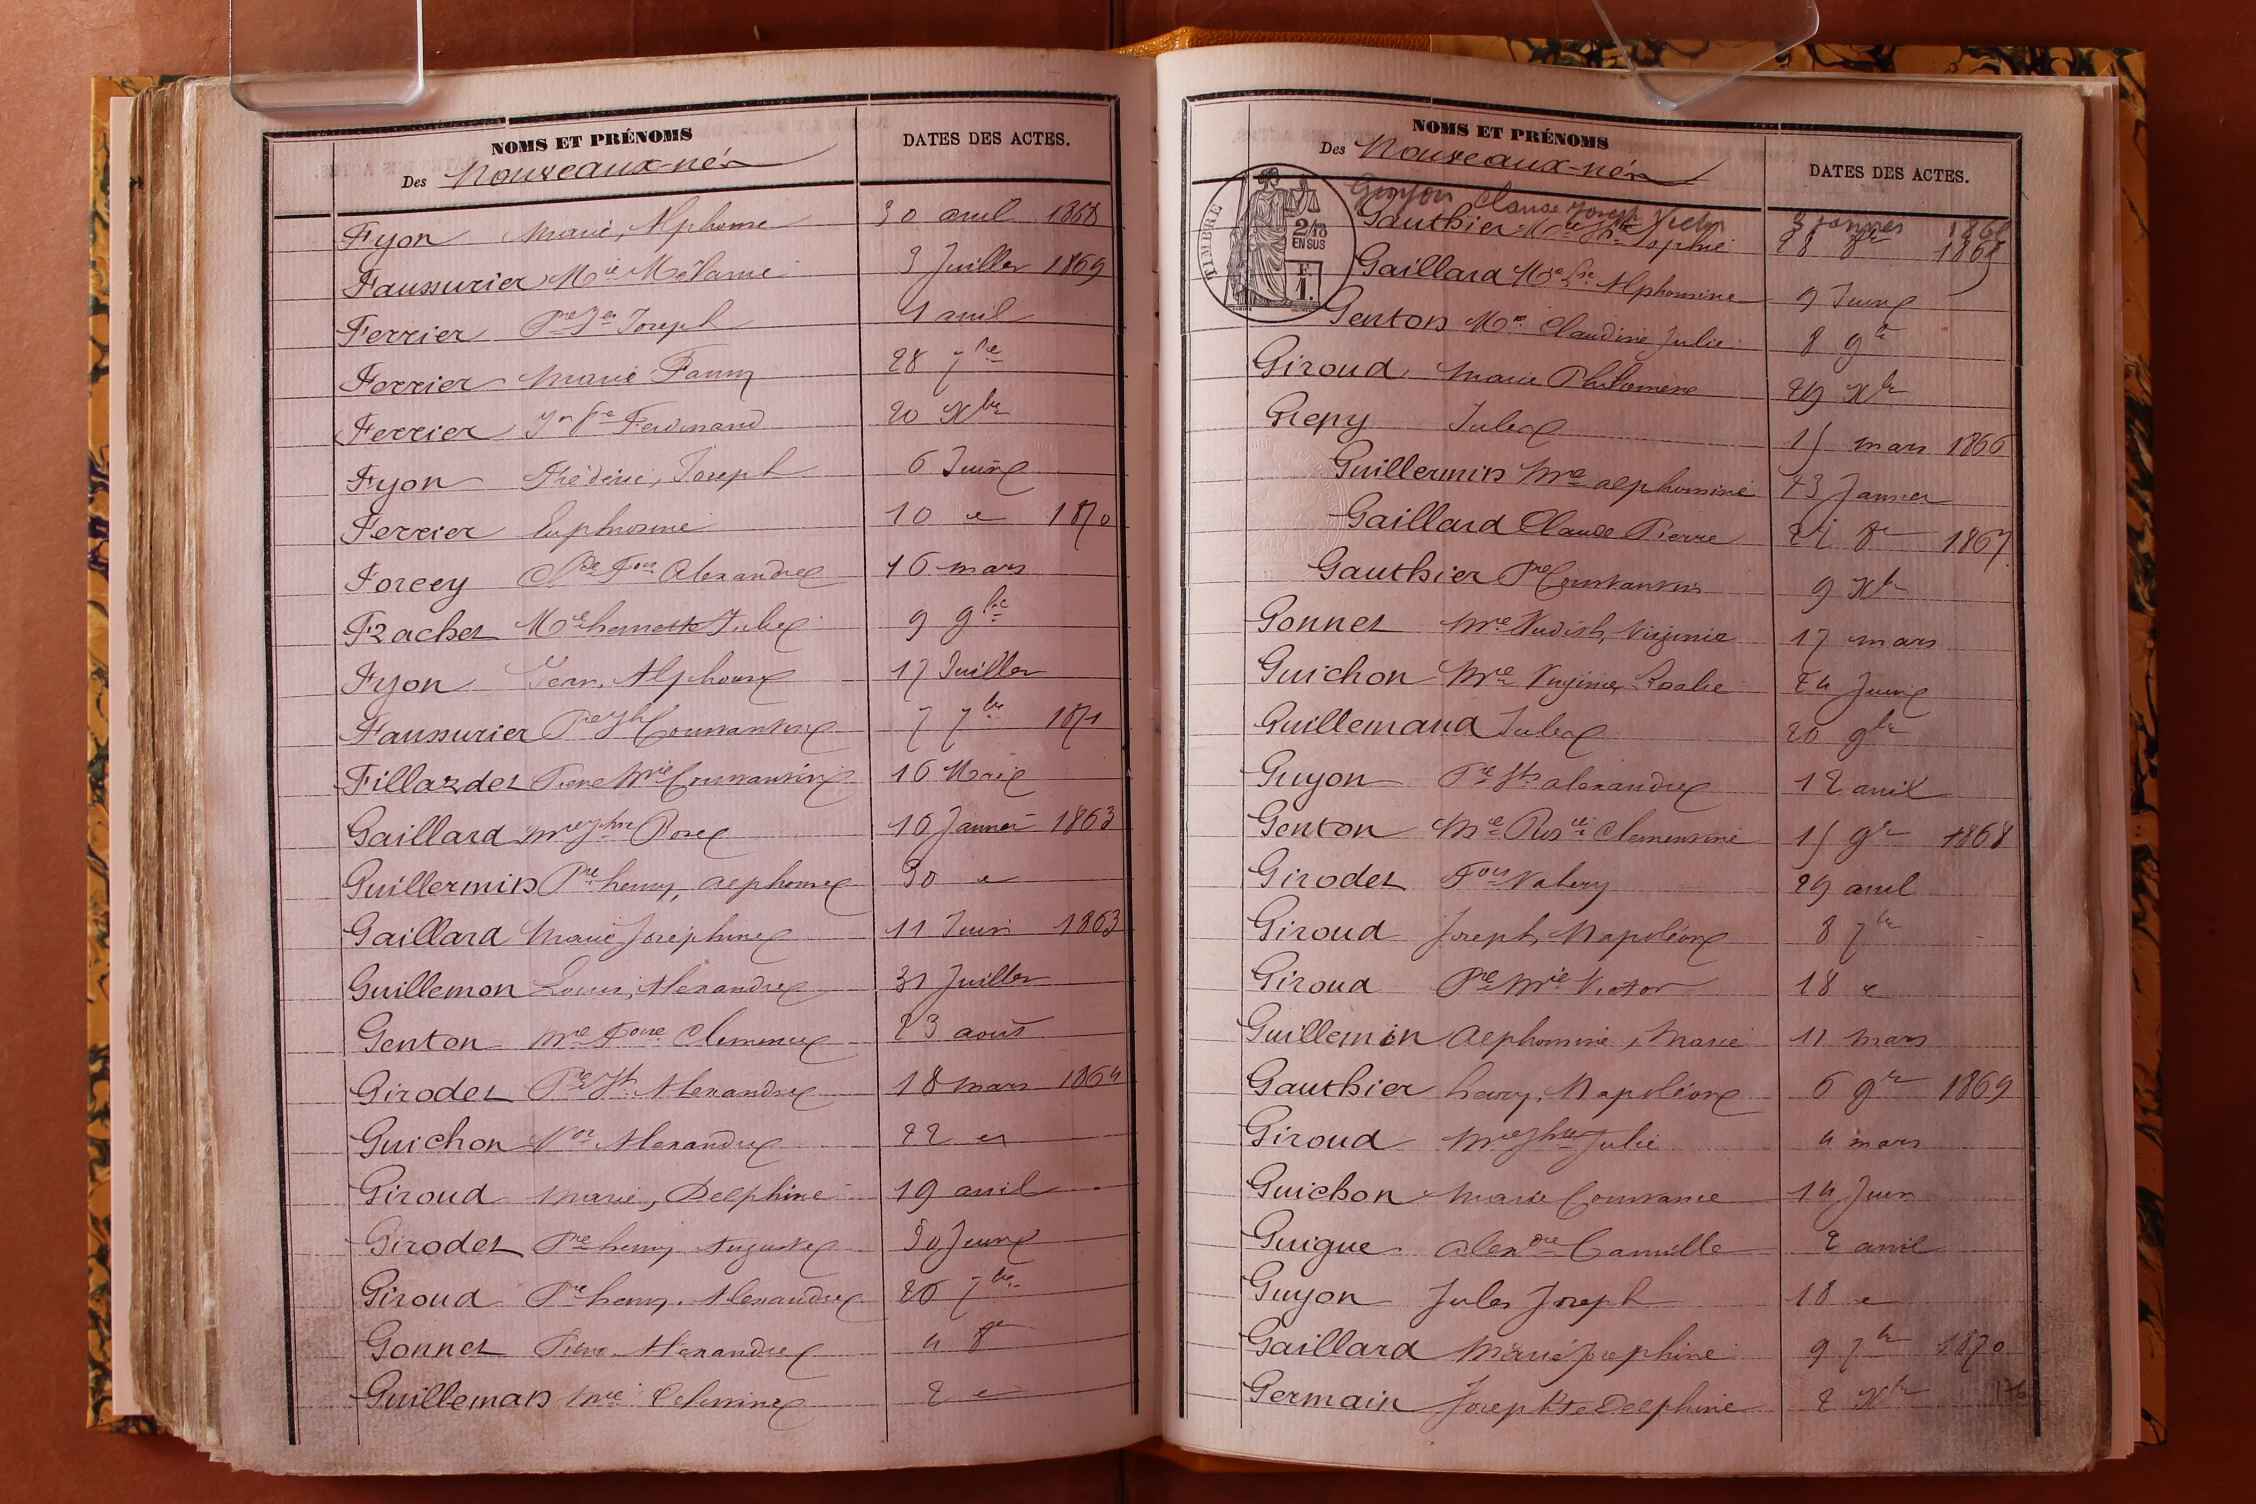 NOMS ET PRÉNOMS
Des Nouveaux-nés
DATES DES ACTES.
Fyon Marie, Alphonse 30 avril 1868
Faussurier Mie Mélanie 3 Juillet 1869
Ferrier Pre Jh Joseph 4 avril
Ferrier Marie Fanny 28 7bre
Ferrier Jn Bte Ferdinand 20 Xbre
Fyon Frédéric, Joseph 6 Juin
Ferrier Euphrosine 10 " 1870
Forcey Cde Fois Alexandre 16 mars
Frachet Mie henriette Julie 9 9bre
Fyon Jean, Alphonse 17 Juillet
Faussurier Pre Jh Constantin 7 7bre 1871
Fillardet Pierre Mie Constantin 16 Mai
Gaillard Mie Jphne Rose 10 Janvier 1863
Guillermin Pre henry, alphonse 30 "
Gaillard Marie Joséphine 11 Juin 1863
Guillemon Louis, Alexandre 31 Juillet
Genton Mie Foise Clémence 23 août
Girodet Pre Jh Alexandre 18 mars 1864
Guichon Vor Alexandre 22 "
Giroud Marie, Delphine 19 avril
Girodet Pre henry Auguste 30 Juin
Giroud Pre henry Alexandre 26 7bre
Gonnet Pierre Alexandre 4 8re
Guilleman Mie Célestine 2 "
NOMS ET PRÉNOMS
Des Nouveaux-nés
DATES DES ACTES.
TIMBRE
2/10
EN SUS
F.
1.
Guyon Claude Joseph Victor 3 janvier 186
Gauthier Mie Sophie 28 8re 1865
Gaillard Mie Alphonsine 9 Juin
Genton Mie Claudine Julie 8 9re
Giroud Marie Philomène 29 Xbre
Grepy Jules 15 mars 1866
Guillermin Mie alphonsine 23 Janvier
Gaillard Claude Pierre 22 8re 1867
Gauthier Pre Constantin 9 Xbre
Gonnet Mie Virginie 17 mars
Guichon Mie Virginie Rosalie 24 Juin
Guillemaud Jules 20 9bre
Guyon Pre Jh alexandre 12 avril
Genton Mie Rosie Clémentine 15 9re 1868
Girodet Fois Valery 29 avril
Giroud Joseph, Napoléon 8 7bre
Giroud Pre Mie Victor 18 "
Guillemin Alphonsine, Marie 11 mars
Gauthier henry, Napoléon 6 9re 1869
Giroud Mie Jphne Julie 4 mars
Guichon Marie Constance 14 Juin
Guigue Alexdre Camille 2 avril
Guyon Jules Joseph 18 "
Gaillard Marie Josephine 9 7bre 1870
Germain Josephte Delphine 2 Xbre